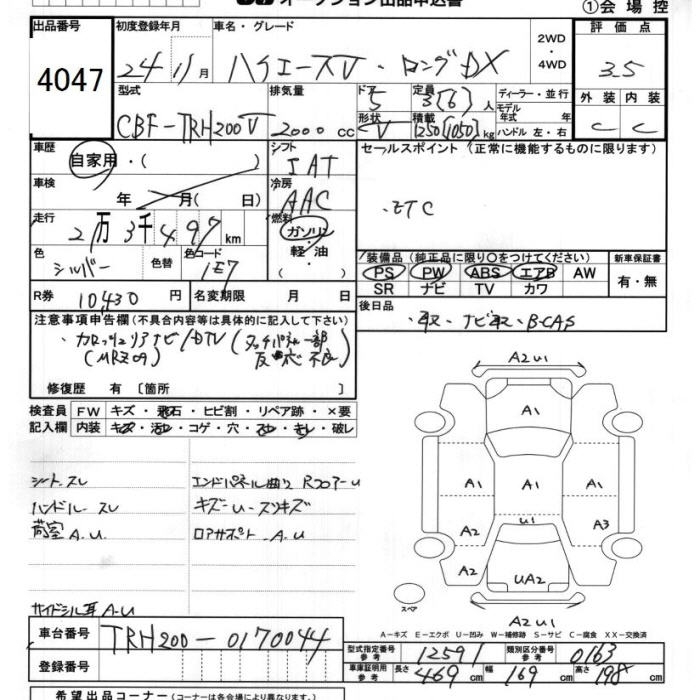 オークション出品申込書
①会場控
出品番号 4047
初度登録年月 24 11月
車名・グレード ハイエースV・ロングDX
2WD・4WD
評価点 3.5
型式 CBF-TRH200V
排気量 2000cc
ドア 5
形状 V
定員 3(6)人
積載 1250(1050)kg
ディーラー・並行
モデル年式 年式
ハンドル 左・右
外装 C
内装 C
車歴 自家用・( )
車検 年 月( 日)
走行 2万3千497km
シフト IAT
冷房 AAC
燃料 ガソリン・軽・油・( )
セールスポイント(正常に機能するものに限ります)
・ETC
色 シルバー
色替
色コード 1E7
装備品(純正品に限り○をつけてください)
PS PW ABS エアB AW
SR ナビ TV カワ
新車保証書 有・無
R券 10430円
名変期限 月 日
後日品 ・取・ナビ取・B-CAS
注意事項申告欄(不具合内容等は具体的に記入して下さい)
・カロッツェリアナビ/DTV(タッチパネル一部
(MRZ09) 反応不良)
修復歴 有〔箇所 〕
検査員記入欄
FW キズ・飛石・ヒビ割・リペア跡・×要
内装 キズ・汚れ・コゲ・穴・スレ・キレ・破レ
シート.スレ
エンドパネル曲り Rフロアーu
ハンドル.スレ
キズ-u-スリキズ
荷室A.u.
ロアサポート A.u
サイドシル耳A-u
A2u1
A1
A1 A1 A1
u1
A2 A3
A2 UA2
スペア
A2u1
A-キズ E-エクボ U-凹み W-補修跡 S-サビ C-腐食 XX-交換済
車台番号 TRH200-0170044
登録番号
型式指定番号 参考 12591
類別区分番号 参考 0163
車庫証明用 参考 長さ 469cm 幅 169cm 高さ 198cm
希望出品コーナー(コーナーは各会場により異なります)